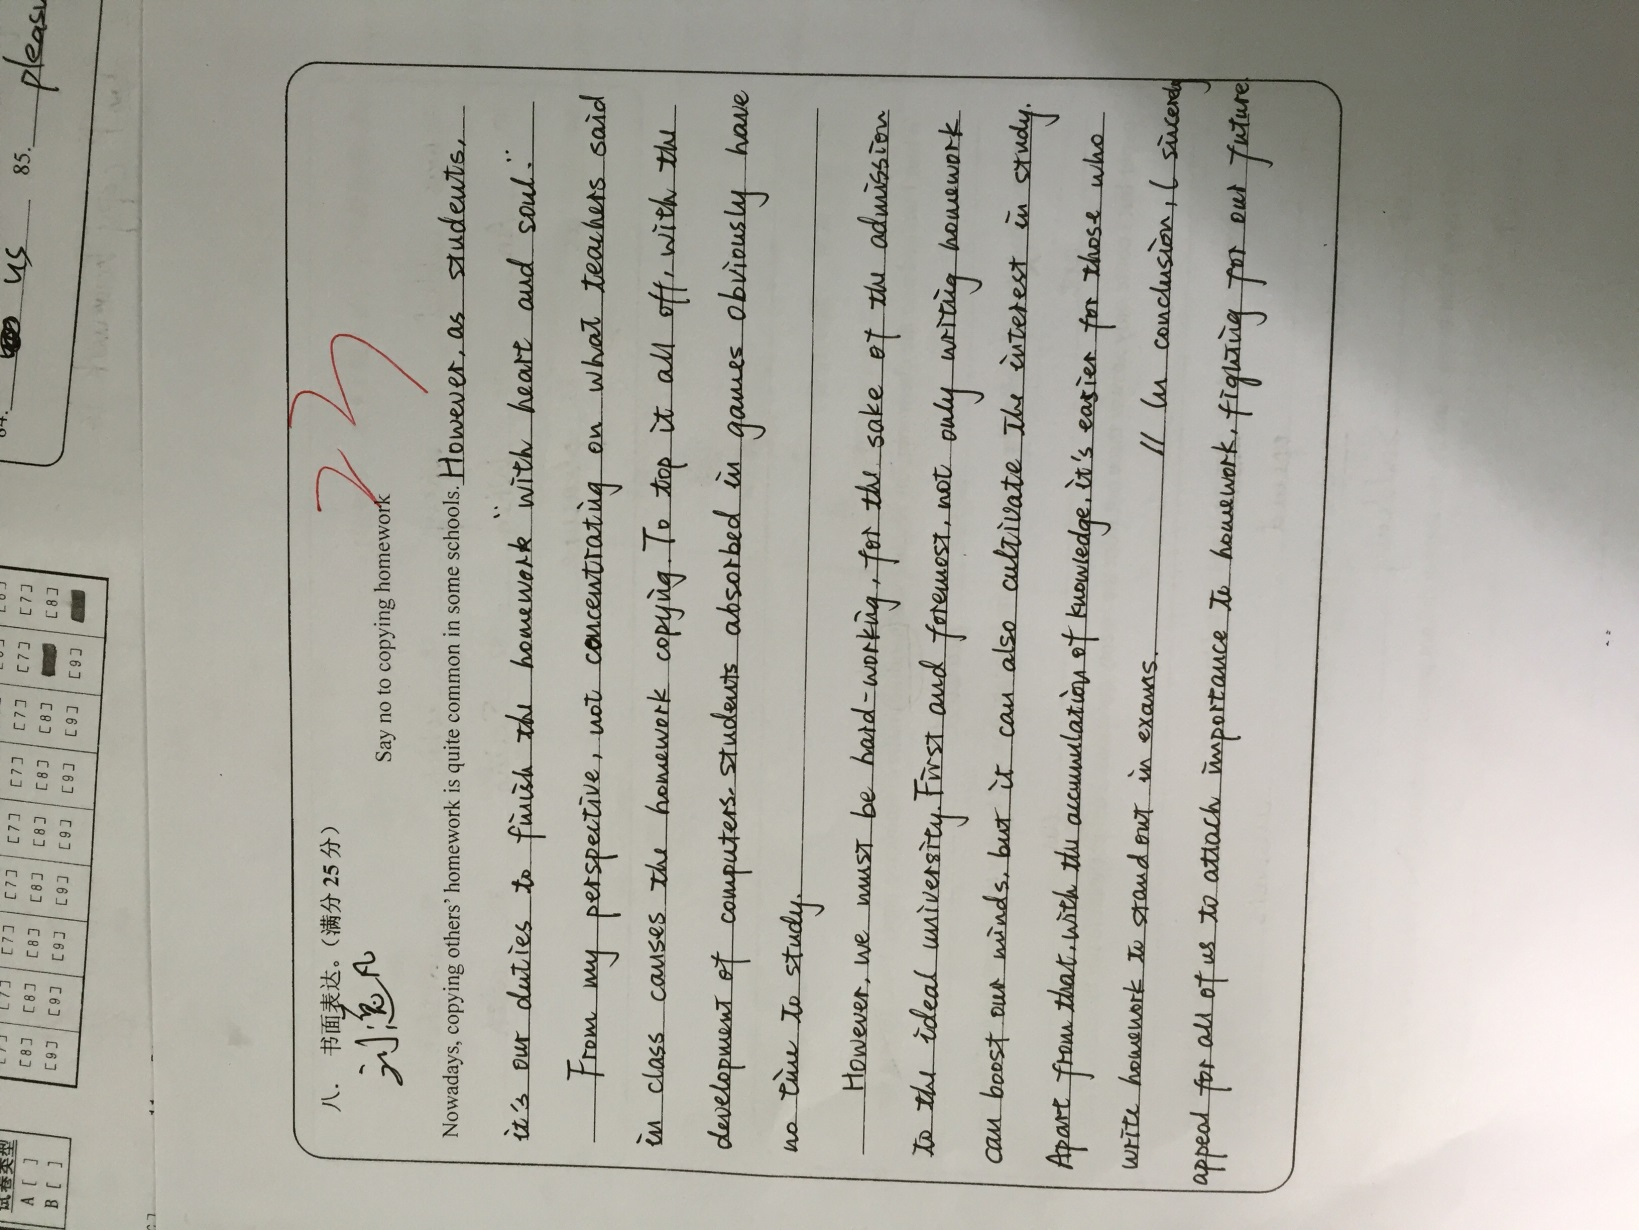 us 85. pleasu
84.
[6] [7] [8]
[6] [7] [9]
[7] [8] [9]
[7] [8] [9]
[7] [8] [9]
[7] [8] [9]
[7] [8] [9]
[7] [8] [9]
[7] [8] [9]
试卷类型
A [ ]
B [ ]
八. 书面表达。(满分 25 分)
23
Say no to copying homework
Nowadays, copying others' homework is quite common in some schools. However, as students,
it's our duties to finish the homework "with heart and soul."
From my perspective, not concentrating on what teachers said
in class causes the homework copying. To top it all off, with the
development of computers. students absorbed in games obviously have
no time to study.
However, we must be hard-working, for the sake of the admission
to the ideal university. First and foremost, not only writing homework
can boost our minds, but it can also cultivate the interest in study.
Apart from that, with the accumulation of knowledge, it's easier for those who
write homework to stand out in exams. // In conclusion, I sincerely
appeal for all of us to attach importance to homework, fighting for our future.